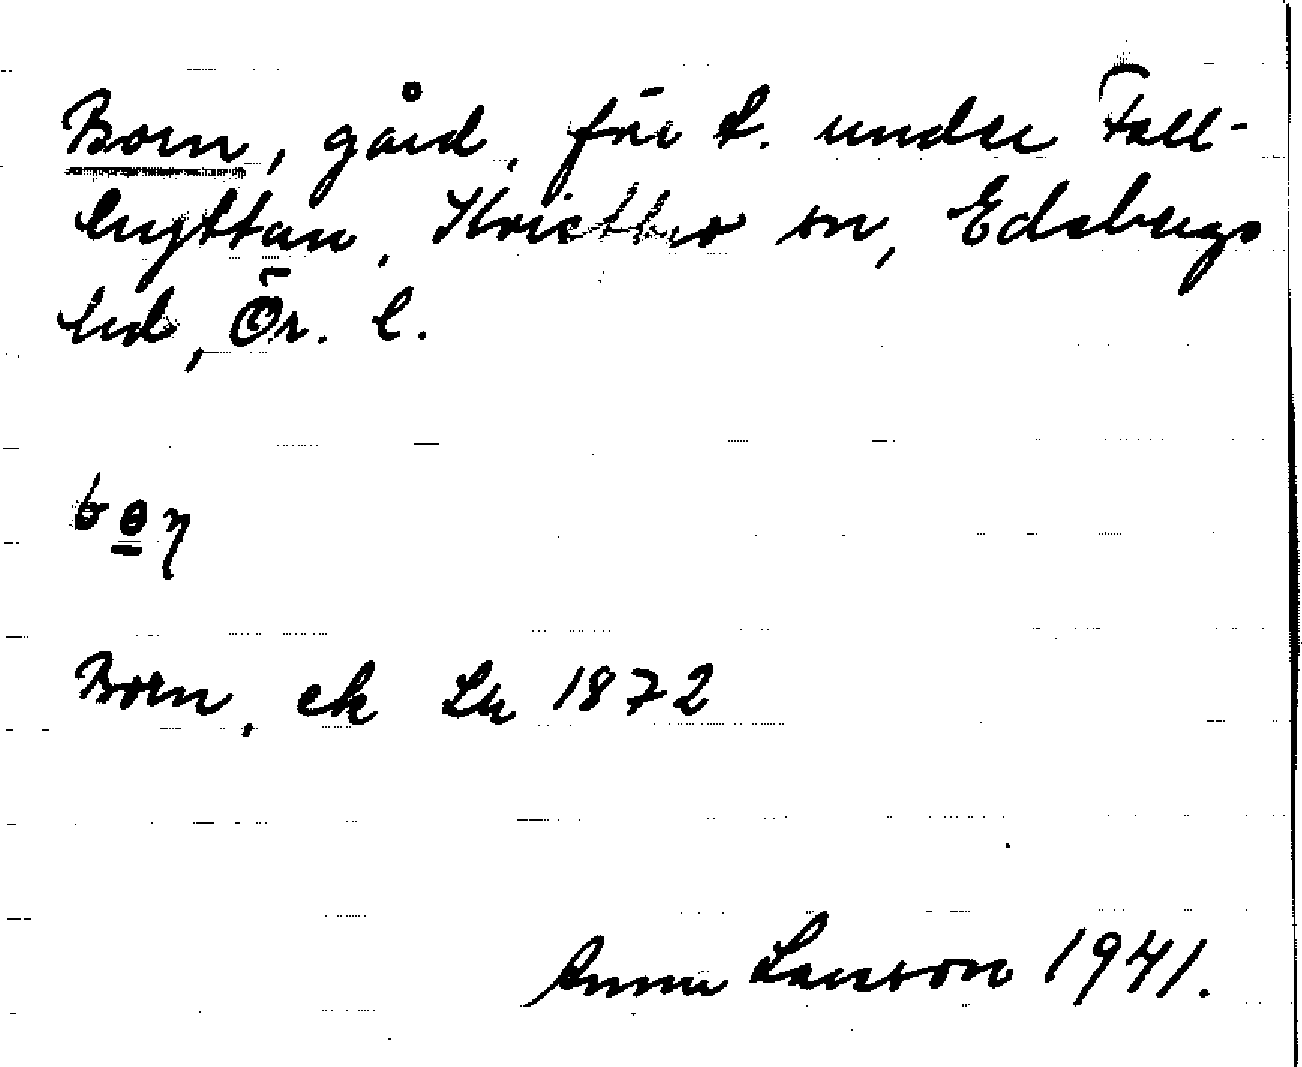 Born, gård, förr t. under Fall-
hyttan, Kvistbro sn, Edsbergs
hd, Ör. l.
bo̲ɳ
Born, ek Lk 1872
Anna Larsson 1941.